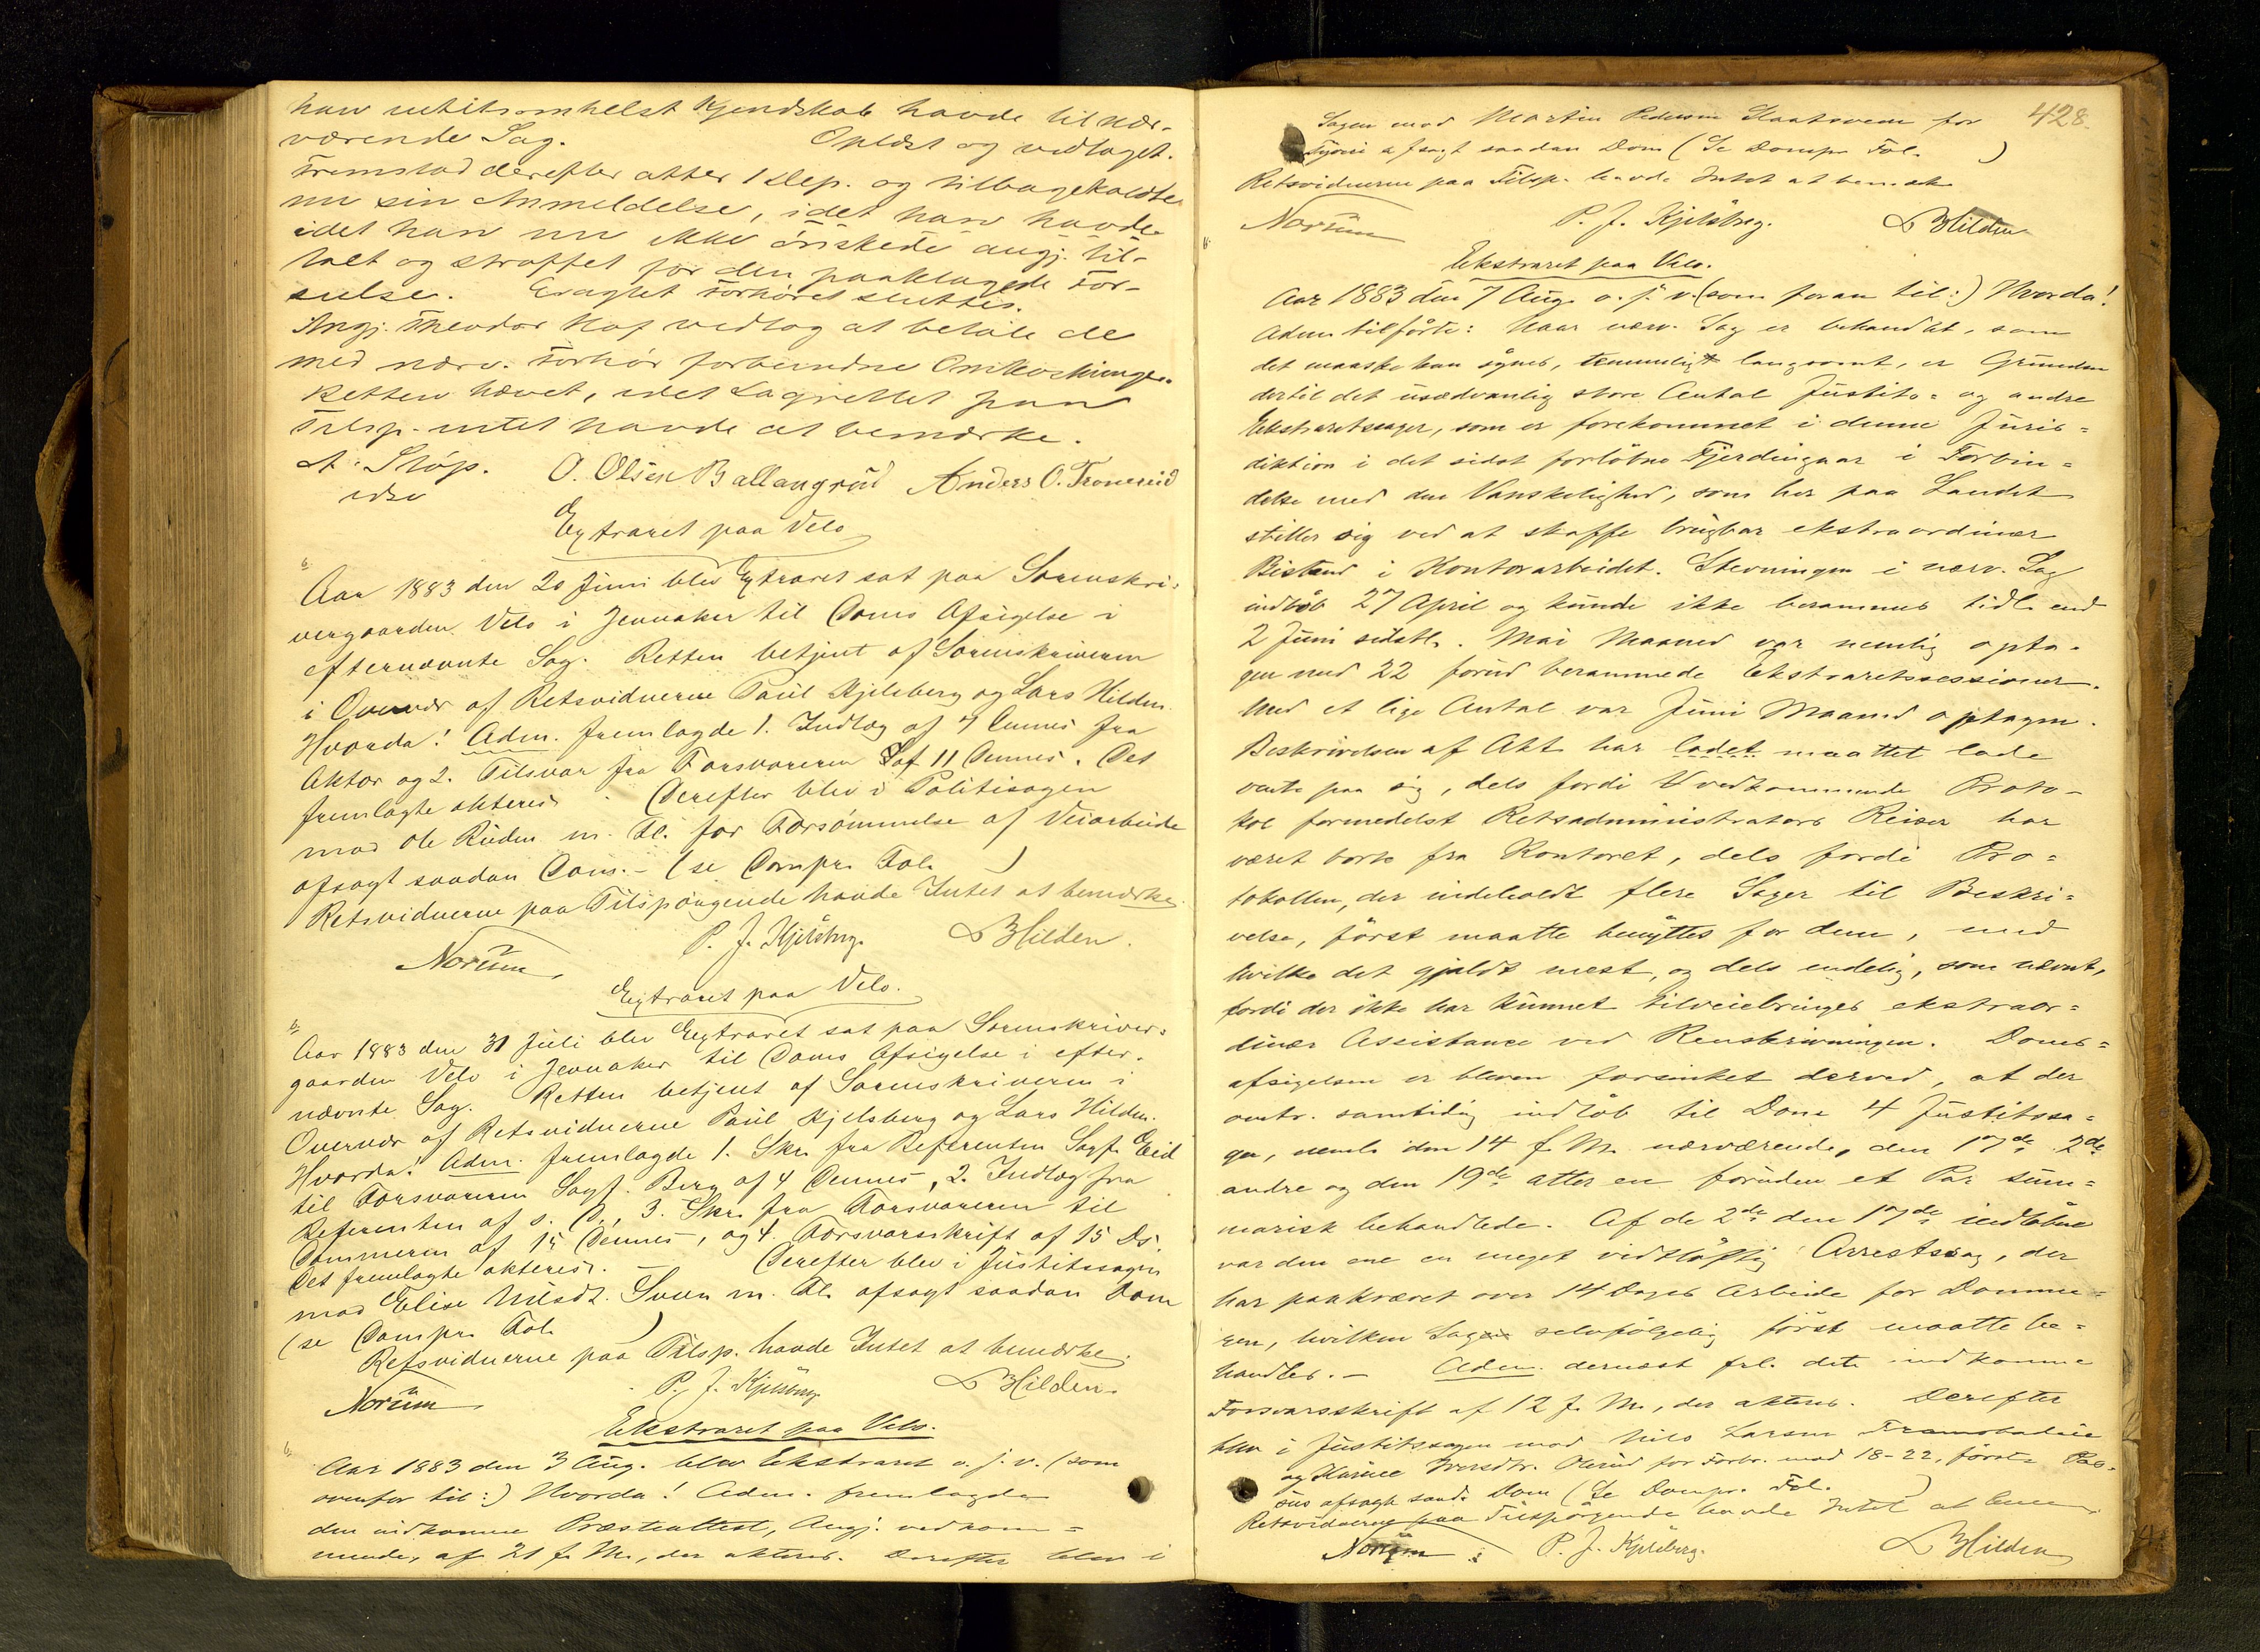 han intetsomhelst Kjendskab havde til nær-
værende Sag. Oplæst og vedtaget.
Fremstod derefter atter 1 Dep. og tilbagekaldte
nu sin Anmeldelse, idet han havde
idet han nu ikke önskede angj. til-
talt og straffet for den paaklagede For-
seelse. Eragtet Forhöret sluttet.
Angj. Theodor Kaf vedtog at betale de
med nærv. Forhör forbundne Omkostninger.
Retten hævet, idet Lagrettet paa
Tilsp. intet havde at bemærke.
A. Stöp. O. Olsen Ballangrud Anders O. Tronerud
edsv
Extraret paa Velo
Aar 1883 den 20 Juni blev Extraret sat paa Sorenskri-
vergaarden Velo i Jevnaker til Doms Afsigelse i
efternævnte Sag. Retten betjent af Sorenskriveren
i Overvær af Retsvidnerne Paul Kjelsberg og Lars Hilden.
Hvorda! Adm. fremlagde 1. Indlæg af 7 Dennes fra
Aktor og 2. Tilsvar fra Forsvareren af 11 Dennes. Det
fremlagte akteres. Derefter blev i Politisagen
mod Ole Ruden m. Fl. for Forsömmelse af Veiarbeide
afsagt saadan Dom. - (se Dompr. Fol. )
Retsvidnerne paa Tilspörgende havde Intet at bemærke.
Norum. P. J. Kjelsberg. L Hilden.
Extraret paa Velo.
Aar 1883 den 31 Juli blev Extraret sat paa Sorenskriver-
gaarden Velo i Jevnaker til Doms Afsigelse i efter-
nævnte Sag. Retten betjent af Sorenskriveren i
Overvær af Retsvidnerne Paul Kjelsberg og Lars Hilden.
Hvorda! Adm. fremlagde 1. Skr. fra Referenten Sagf. Eid
til Forsvareren Sagf. Berg af 4 Dennes, 2. Indlæg fra
Referenten af s. D., 3. Skr. fra Forsvareren til
Dommeren af 15 Dennes, og 4. Forsvarsskrift af 15 Ds.
Det fremlagte akteres. Derefter blev i Justitssagen
mod Elise Nilsdt. Sven m. Fl. afsagt saadan Dom
(se Dompr. Fol. )
Retsvidnerne paa Tilsp. havde Intet at bemærke.
Norum P. J. Kjelsberg L Hilden.
Ekstraret paa Velo.
Aar 1883 den 3 Aug. blev Ekstraret o. s. v. (som
ovenfor til:) Hvorda! Adm. fremlagde
den indkomne Præsteattest, Angj. vedkom-
mende, af 21 f. M., der akteres. Derefter blev i
428.
Sagen mod Martin Pedersen Slaatsveen for
Tyveri afsagt saadan Dom (Se Dompr. Fol. )
Retsvidnerne paa Tilsp. havde Intet at bemærk
Norum P. J. Kjelsberg. L Hilden
Ekstraret paa Velo.
Aar 1883 den 7 Aug. o. s. v. (som foran til:) Hvorda!
Adm. tilförte: Naar nærv. Sag er behandlet, som
det maaske kan synes, temmeligt langsomt, er Grunden
dertil det usædvanlig store Antal Justits- og andre
Ekstraretssager, som er forekommet i denne Juris-
diktion i det sidst forlöbne Fjerdingaar i Forbin-
delse med den Vanskelighed, som her paa Landet
stiller sig ved at skaffe brugbar ekstraordinær
Bistand i Kontorarbeidet. Stevningen i nærv. Sag
indlöb 27 April og kunde ikke berammes tidl. end
2 Juni sidstl. Mai Maaned var nemlig opta-
gen med 22 forud berammede Ekstraretssessioner.
Med et lige Antal var Juni Maaned optagen.
Beskrivelsen af Akt. har ladet maattet lade
vente paa sig, dels fordi Vedkommende Proto-
kol formedelst Retsadministrators Reiser har
været borte fra Kontoret, dels fordi Pro-
tokollen, der indeholdt flere Sager til Beskri-
velse, först maatte benyttes for dem, med
hvilke det gjaldt mest, og dels endelig, som nævnt,
fordi der ikke har kunnet tilveiebringes ekstraor-
dinær Assistance ved Renskrivningen. Doms-
afsigelsen er bleven forsinket derved, at der
omtr. samtidig indlöb til Doms 4 Justitssa-
ger, neml. den 14 f. M. nærværende, den 17de 2de
andre og den 19de atter en foruden et Par sum-
marisk behandlede. Af de 2de den 17de indlöbne
var den ene en meget vidtlöftig Arrestsag, der
har paakrævet over 14 Dages Arbeide for Domme-
ren, hvilken Sag selvfölgelig först maatte be-
handles. - Adm. dernæst frl. det indkomne
Forsvarsskrift af 12 f. M., der akteres. Derefter
blev i Justitssagen mod Nils Larsen Framstadeie
og Karine Iversdtr. Olerud for Forbr. mod 18-22, förste Pas-
sus afsagt saad. Dom (Se Dompr. Fol. )
Retsvidnerne paa Tilspörgende havde Intet at bem
Norum P. J. Kjelsberg. L Hilden